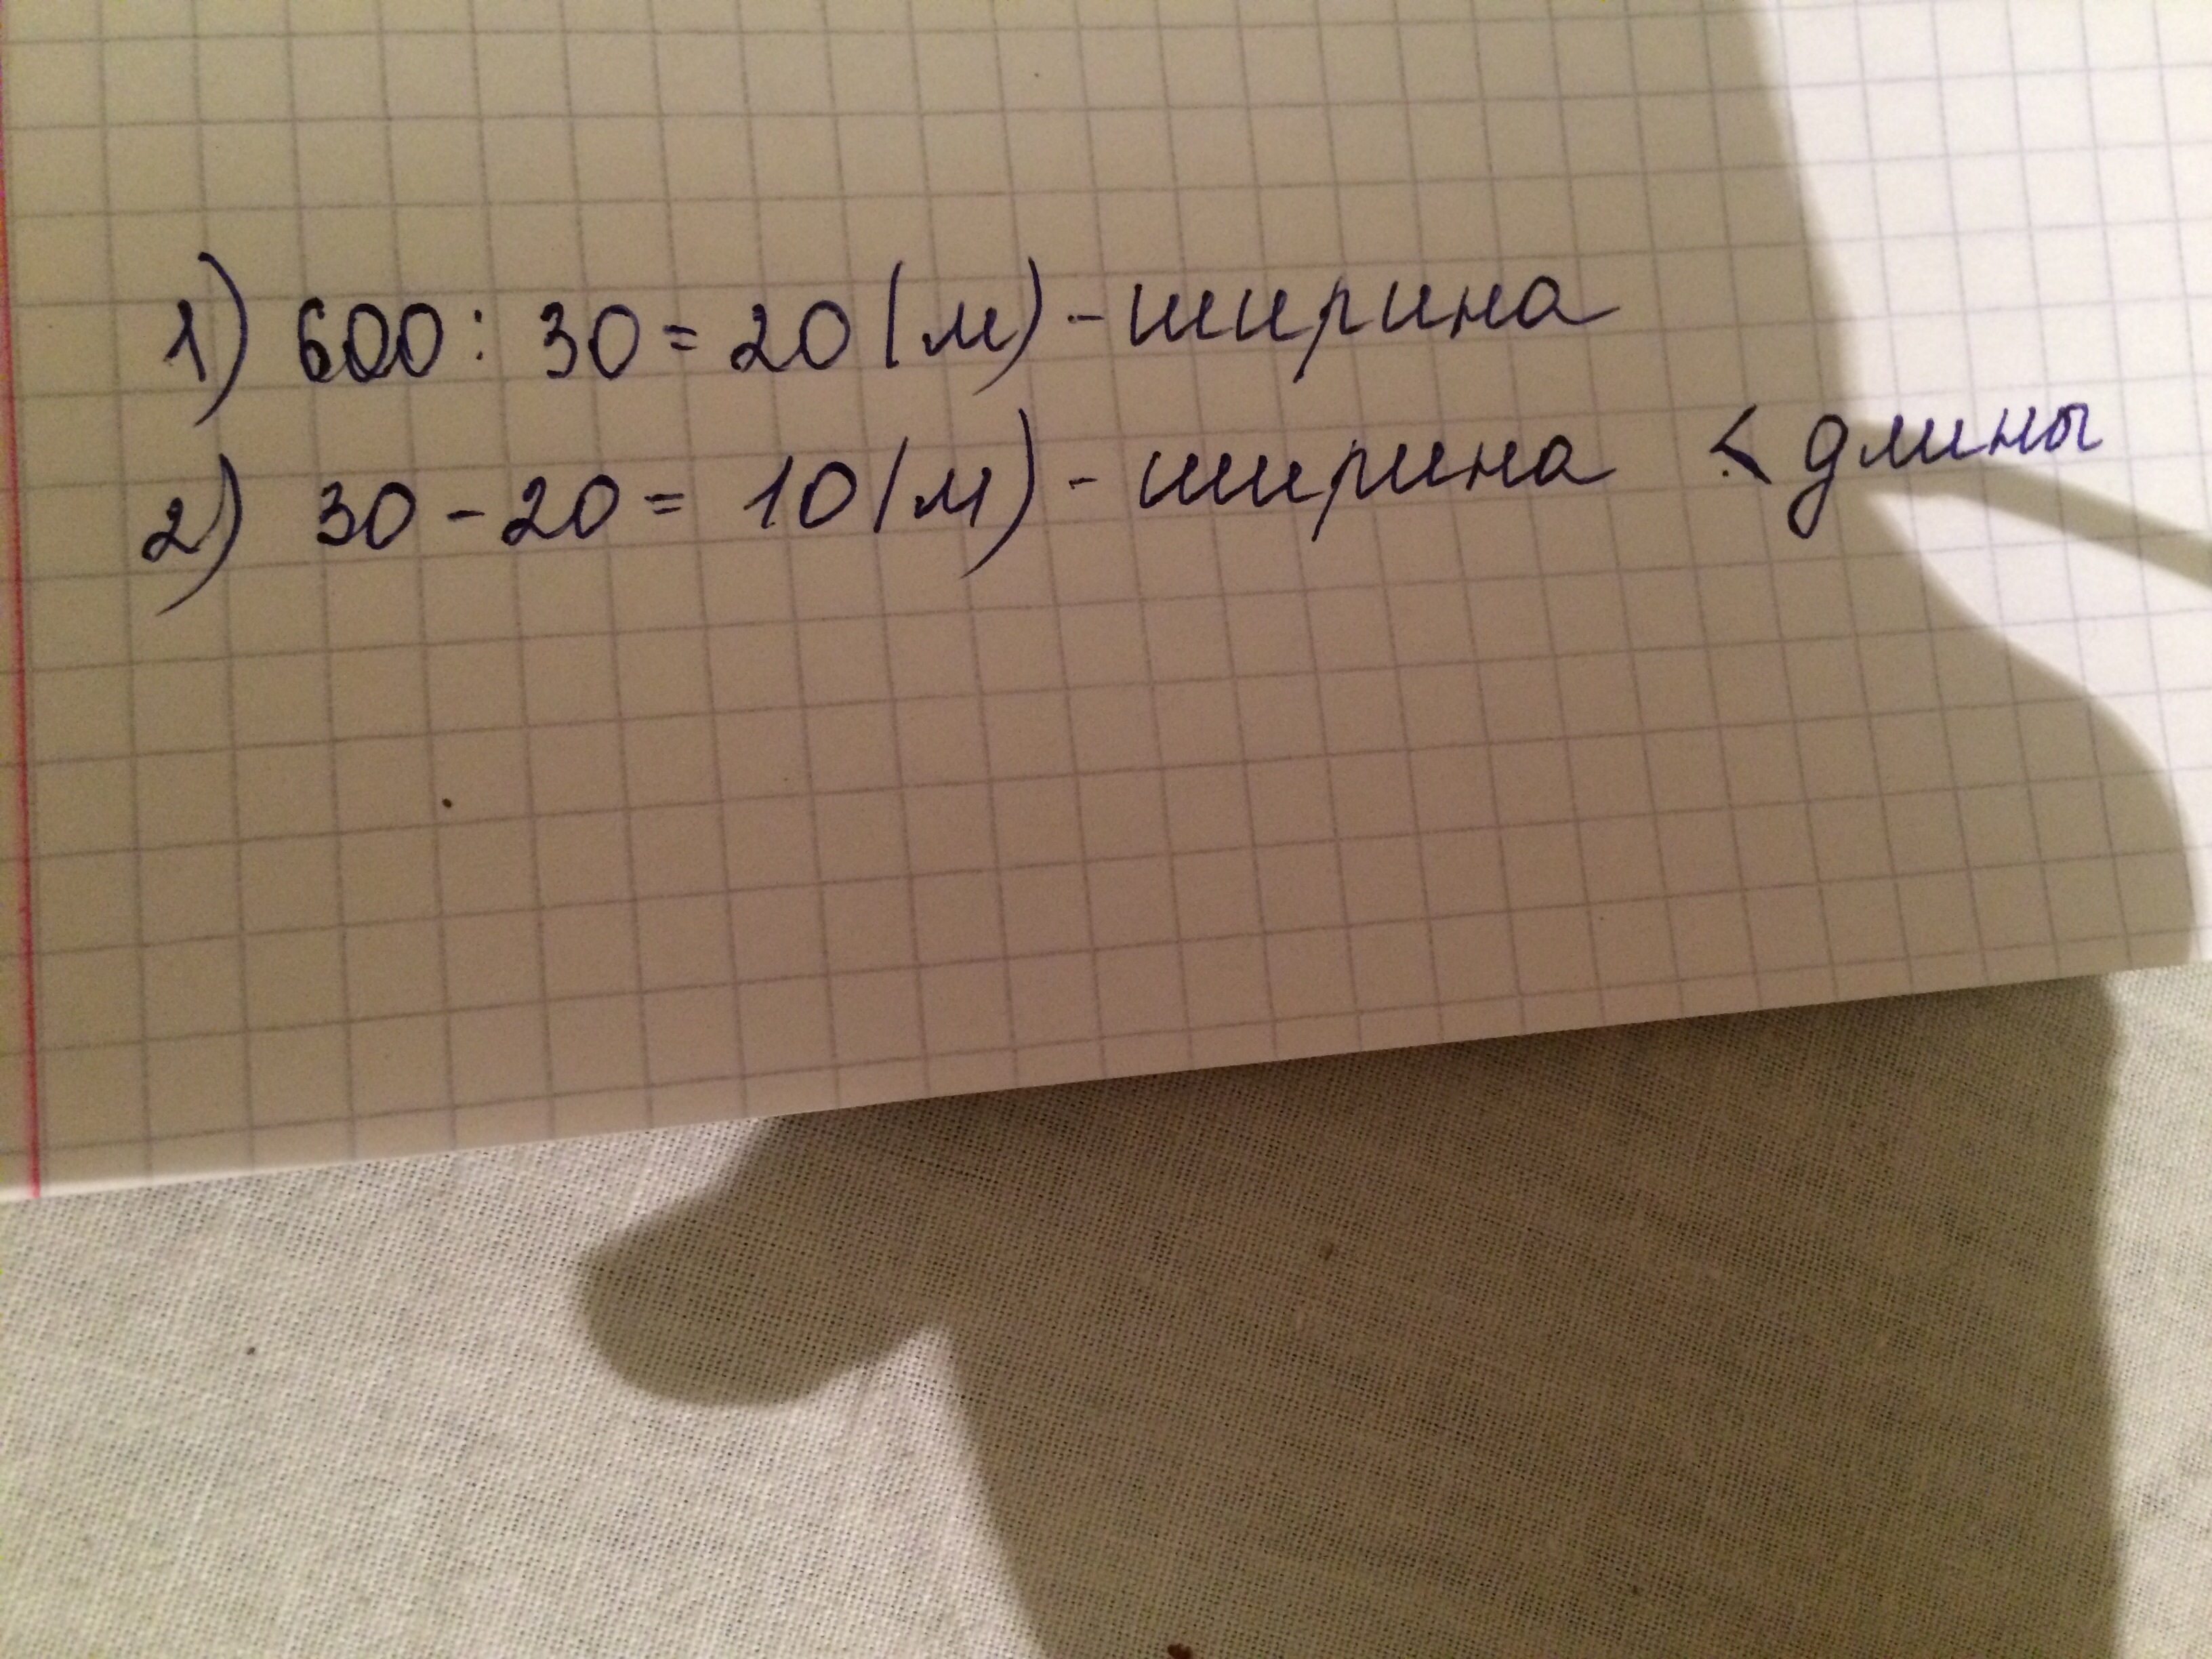 1) 600 : 30 = 20 (м) - ширина
2) 30 - 20 = 10 (м) - ширина < длины